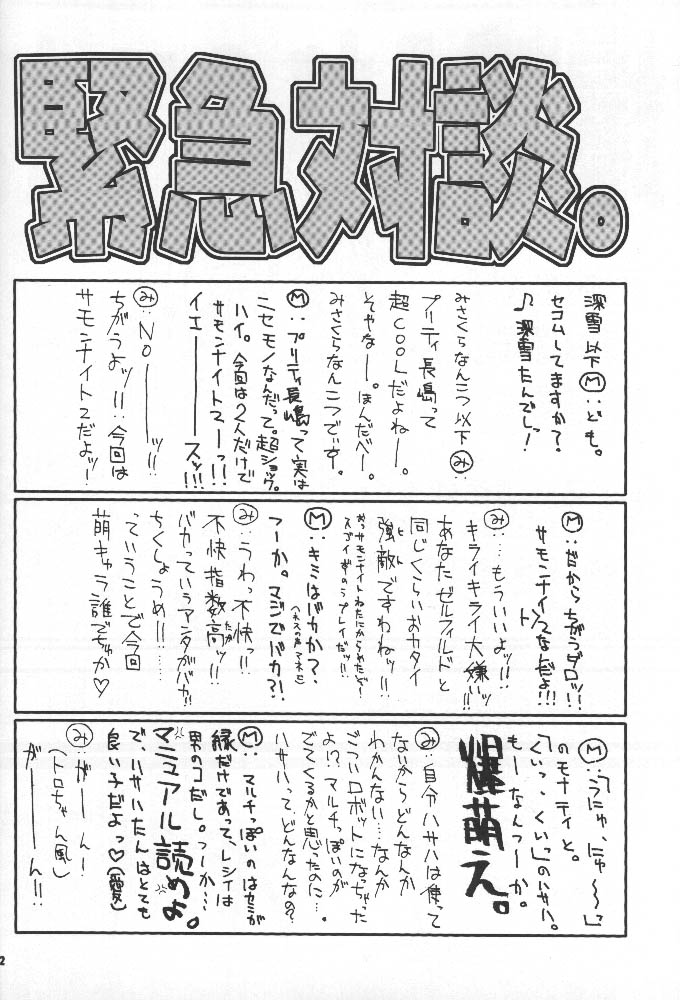 緊急対談。
深雪以下Ⓜ:ども。
セコムしてますか?
♪深雪たんでし!
みさくらなんこつ以下み:
プリティ長嶋って
超COOLだよねー。
そやなー。ほんだべー。
みさくらなんこつでいす。
Ⓜ:プリティ長嶋って実は
ニセモノなんだって。超ショック。
ハイ。今回は2人だけで
サモンナイトマーっ!!
イエーーースッ!!!
み:NOーーーッ!!
ちがうよッ!!:今回は
サモンナイト2だよッ!
Ⓜ:だからちがうダロッ!!
サモンナイズなんだよ!!!
ト2
み:…もういいよッ!!
キライキライ大嫌いッ!!
あなたゼルフィルドと
同じくらいおカタイ
強敵ですわねッ!!
ヒト
おっサモンナイトねたにからられたぞ!
スゴイぞのうプレイだっ!!
Ⓜ:キミはバカか?、
(ネスの声マネで)
つーか。マジでバカ?!
み:うわっ不快っ!!
不快指数高ッ!!
たか
バカっていうアンタがバカ!
ちくしょうめ!!……
っていうことで今回
萌キャラ誰でちゅか♡
Ⓜ:「うにゅ、にゅ〜〜」
のモナティと。
「くいっ、くいっ」のハサハ。
もーなんつーか。
爆萌え。
み:自分ハサハは使って
ないからどんなんか
わかんない…なんか
ごついロボットになっちゃった
よ!?マルチっぽいのが
でてくるかと思ったのに…。
ハサハってどんなんなの?
Ⓜ:マルチっぽいのはセミが
縁だけであって、レシィは
男のコだし。つーか…
マニュアル読めよ。
で、ハサハたんはとても
良い子だよっ♡(愛)
み:がーん!
(トロちゃん風)
がーーーん!!
2